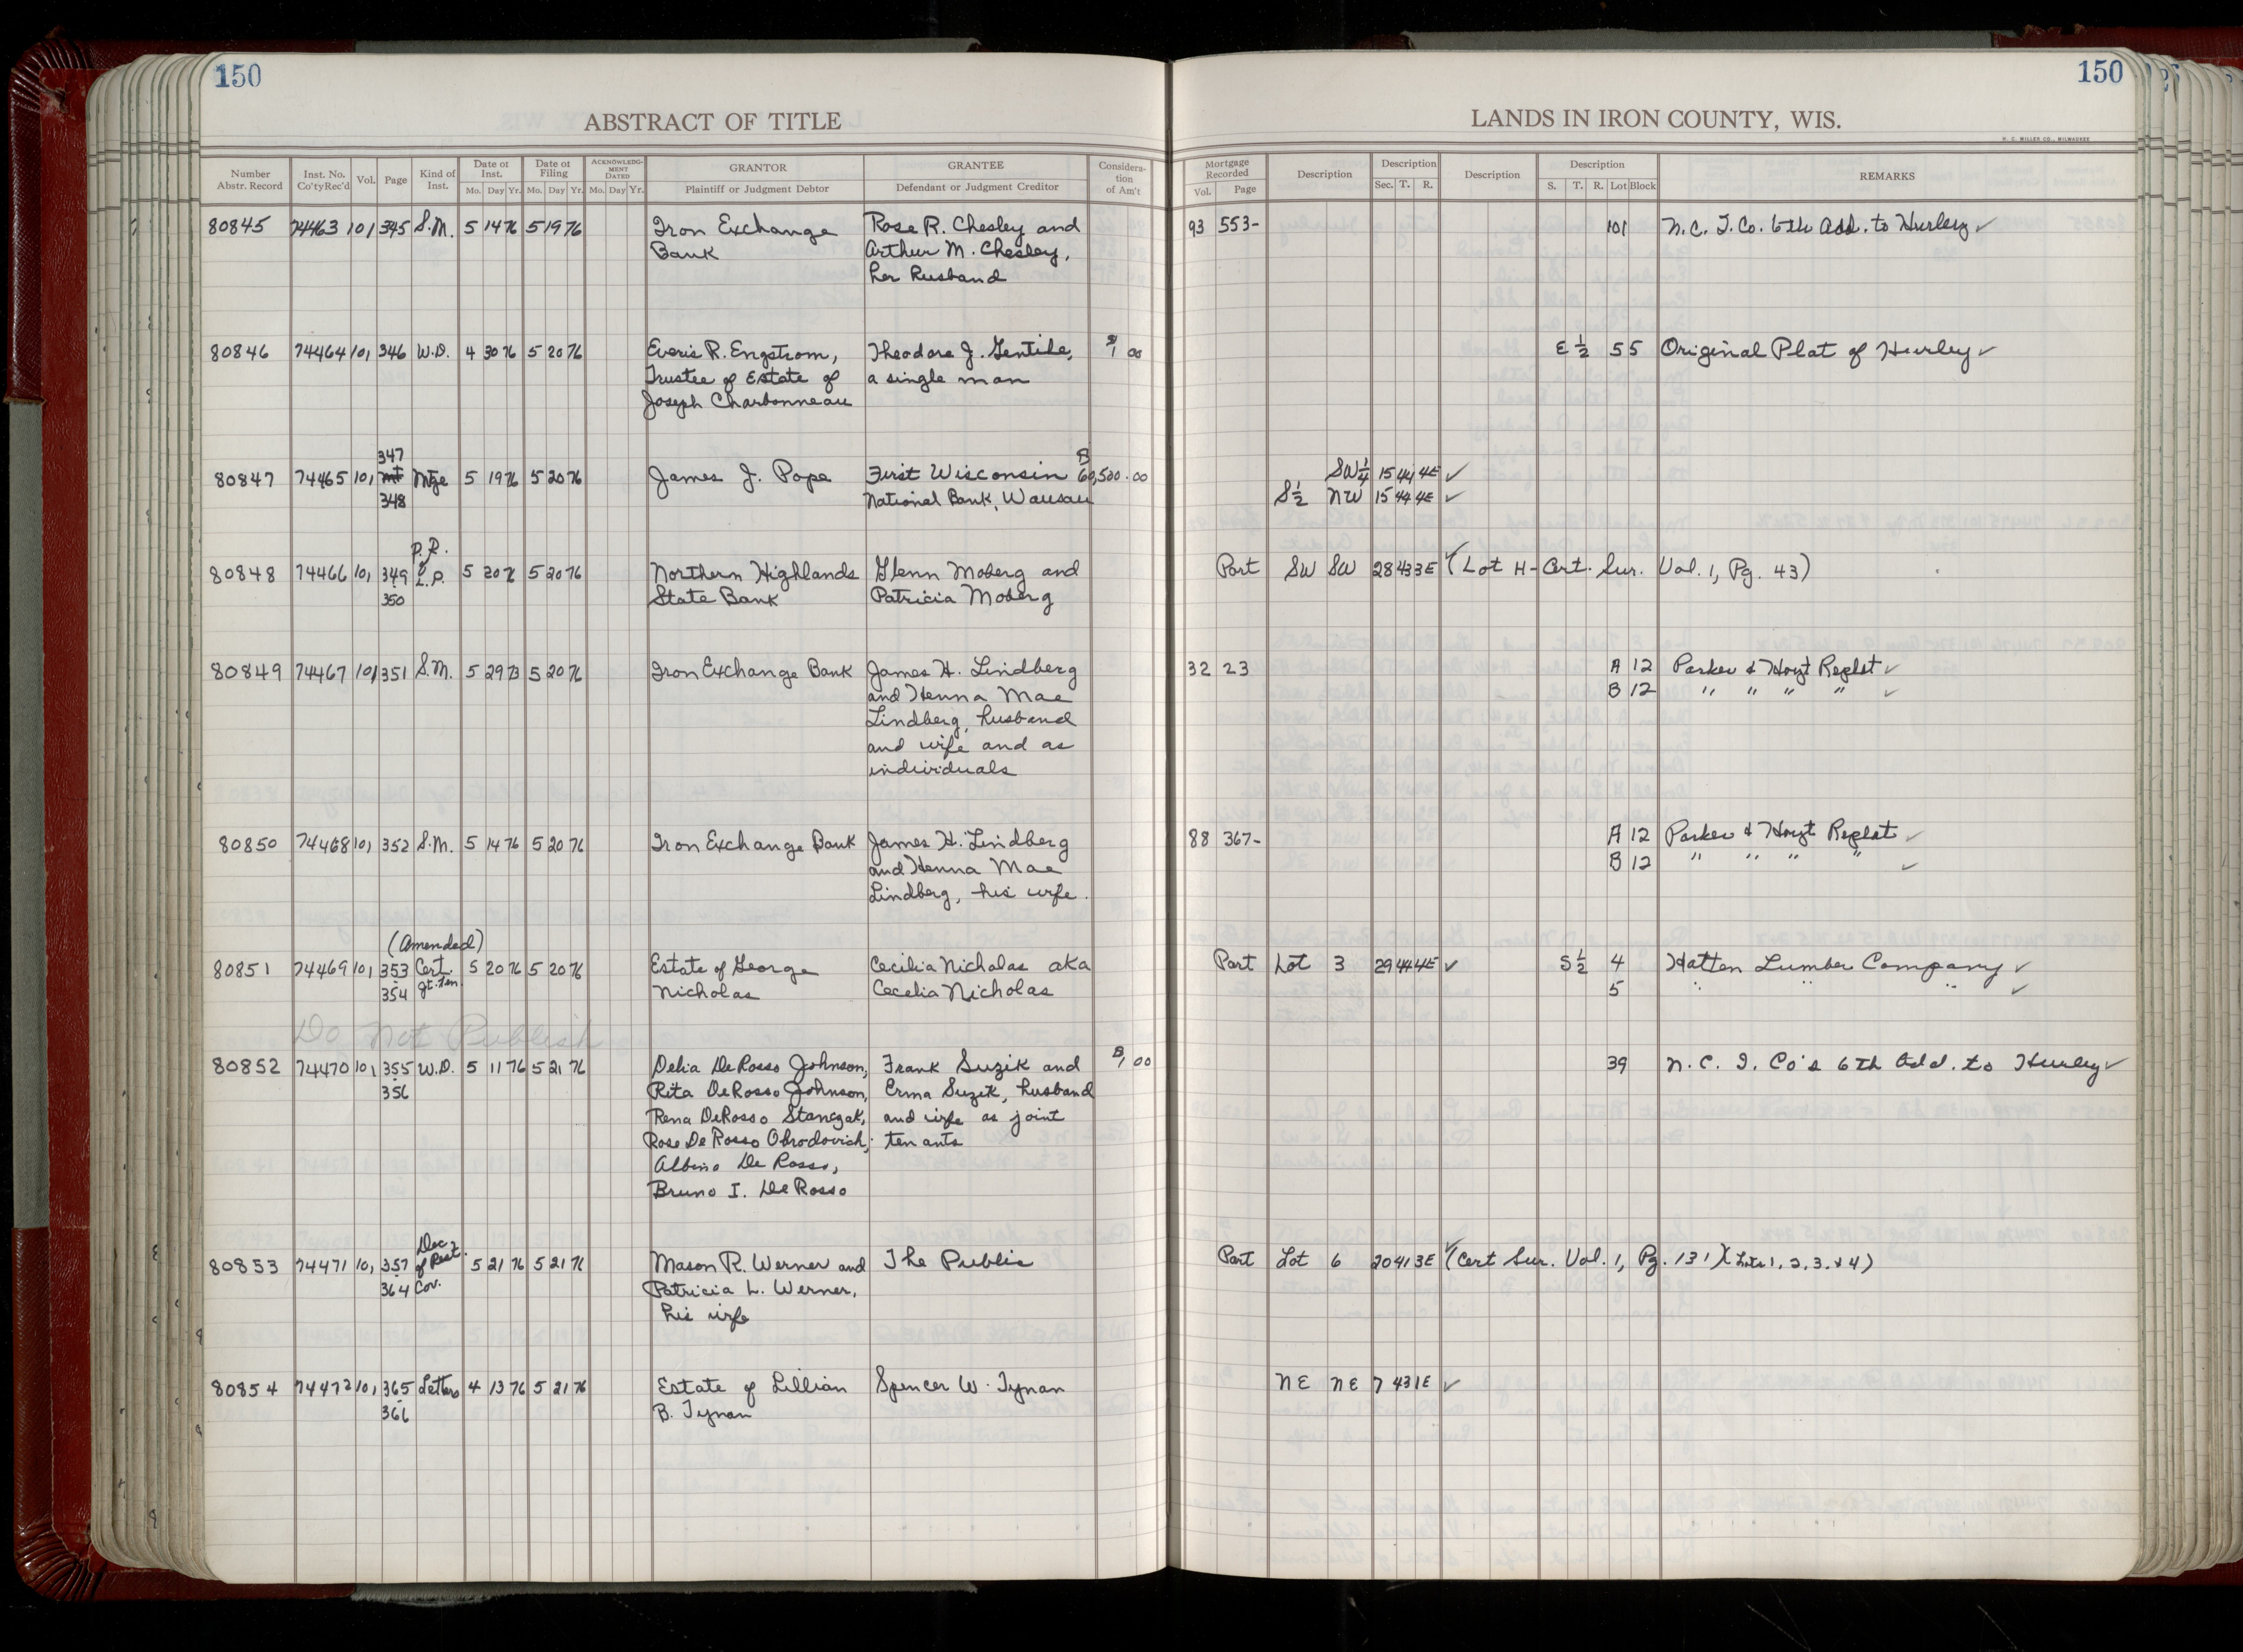 150
150
ABSTRACT OF TITLE
LANDS IN IRON COUNTY, WIS.
H. C. MILLER CO., MILWAUKEE
Number Abstr. Record
Inst. No. Co'tyRec'd
Vol.
Page
Kind of Inst.
Date of Inst. Mo. Day Yr.
Date of Filing Mo. Day Yr.
ACKNOWLEDG-MENT DATED Mo. Day Yr.
GRANTOR Plaintiff or Judgment Debtor
GRANTEE Defendant or Judgment Creditor
Considera-tion of Am't
Mortgage Recorded Vol. Page
Description
Description Sec. T. R.
Description
Description S. T. R. Lot Block
REMARKS
80845 74463 101 345 S.M. 5 14 76 5 19 76 Iron Exchange Rose R. Chesley and 93 553- 101 N.C.I.Co. 6th Add. to Hurley ✓
Bank Arthur M. Chesley,
her husband
80846 74464 101 346 W.D. 4 30 76 5 20 76 Everis R. Engstrom, Theodore J. Gentile, $1 00 E ½ 5 5 Original Plat of Hurley ✓
Trustee of Estate of a single man
Joseph Charbonneau
347
80847 74465 101 Mtge 5 19 76 5 20 76 James J. Pope First Wisconsin 60,500.00 SW¼ 15 44 4E ✓
348 National Bank, Wausau S½ NW 15 44 4E ✓
P.R.
80848 74466 101 349 of L.P. 5 20 76 5 20 76 Northern Highlands Glenn Moberg and Part SW SW 28 43 3E ✓ (Lot H - Cert. Sur. Vol. 1, Pg. 43)
350 State Bank Patricia Moberg
80849 74467 101 351 S.M. 5 29 73 5 20 76 Iron Exchange Bank James H. Lindberg 32 23 A 12 Parker & Hoyt Replat ✓
and Henna Mae B 12 " " " " ✓
Lindberg, husband
and wife and as
individuals
80850 74468 101 352 S.M. 5 14 76 5 20 76 Iron Exchange Bank James H. Lindberg 88 367- A 12 Parker & Hoyt Replat ✓
and Henna Mae B 12 " " " " ✓
Lindberg, his wife.
(Amended)
80851 74469 101 353 Cert. 5 20 76 5 20 76 Estate of George Cecilia Nicholas aka Part Lot 3 29 44 4E ✓ S½ 4 Hatten Lumber Company ✓
354 Jt. Ten. Nicholas Cecelia Nicholas 5 " " " ✓
Do Not Publish
80852 74470 101 355 W.D. 5 11 76 5 21 76 Delia DeRosso Johnson, Frank Suzik and $1 00 39 N.C.I. Co's 6th Add. to Hurley ✓
356 Rita DeRosso Johnson, Erma Suzik, husband
Rena DeRosso Stanczak, and wife as joint
Rose DeRosso Obrodovich, tenants
Albino De Rosso,
Bruno I. DeRosso
Dec.
80853 74471 101 357 of Rest. 5 21 76 5 21 76 Mason R. Werner and The Public Part Lot 6 20 41 3E ✓ (Cert Sur. Vol. 1, Pg. 131) (Lots 1, 2, 3, & 4)
364 Cov. Patricia L. Werner,
his wife
80854 74472 101 365 Letters 4 13 76 5 21 76 Estate of Lillian Spencer W. Tynan NE NE 7 43 1E ✓
366 B. Tynan